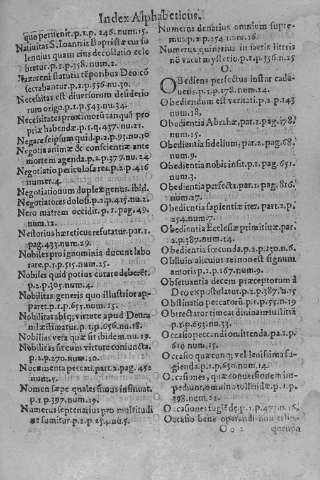 Index Alphabeticus.
que pertienit. p.1.p. 246. num.15.
Natiuitas S. Ioannis Baptistæ cur so
lennius quam eius decollatio cele
bretur. p.2.p. 358. num.2.
Nazareni statutis tēporibus Deo cō
secrabantur. p.1.p. 556. num.10.
Necessitas est diuersorum deliderio
rum origo. p.1.p. 543. nu.34.
Necessitates proximorū tanquā pro
priæ habendæ. p.1. p. 437. nu.21.
Negare seipsum quid. p.2.p. 93. nu.10
Negotia animæ & conscientiæ ante
mortem agenda. p.1.p. 377. nu. 24
Negotiatio periculosa rea. p.2.p. 416
num. 4.
Negotiationum duplex genus. ibid.
Negotiatores dolosi. p.2.p. 415. nu.2.
Nero matrem occidit. p.1. pag. 49.
num. 12.
Nestorius hæreticus refutatur. par. 1.
pag. 433. nu. 29.
Nobiles pro ignominia ducunt labo
rare. p.1. p. 515. nu. 23.
Nobiles quid potius curare deberēt.
p.2.p. 305. num.4.
Nobilitas generis quo illustrior ap-
paret. p.2.p. 651. num.15.
Nobilitas absq; virtute apud Deum
nil æstimatur. p.1.p. 656. nu.18.
Nobilitas vera quæ sit ibidē. nu.19.
Nobilitas sit cum virtute coniuncta.
p.2.p. 270. nu. 10.
Nocumenta peccati. par. 2. pag. 452
num. 5.
Nomen sæpe quales simus insinuat.
p.1.p. 397. nu. 19.
Numerus septenarius pro multitudi
ne sumitur. p.2.p. 254. nu.5.
Numerus denarius omnium supre-
mus. p.2.p. 104. nu.33.
Numerus sumitur in sacris litteris
nō vacat myst. p.1.p. 356. n. 25
O.
OBediens perfectus instar cada-
ueris. p.2.p. 178. num. 24.
Obediendum est vetanti. p.2. p. 143
num.18.
Obedientia Abrahæ, par. 2. pag. 178.
num. 15.
Obedientia fidelium, par. 2. pag. 68.
num. 9.
Obedientia nobis insit. p.1. pag. 651.
num. 3.
Obedientia perfecta. par. 2. pag. 826.
num. 17.
Obedientia sapientiæ iter. part. 2. p,
254. num. 7.
Obedientia Ecclesiæ primitiuæ. par.
2. p. 387. num. 14.
Obedientia fœcunda. p.2.p. 130. n. 6.
Obliuio alicuius rei non est signum
amoris p.1.p. 167. num.9.
Obseruantia decem præceptorum à
Deo expostulatur. p.2.p. 387. n. 15
Obstinatio peccatoris. p.1.p. 55. n. 19
Obtrectator timeat diuinam iustitiā
p.1.p. 693. nu. 33.
Occasio peccandi non ostenda. pa 2.p.
610 num. 15.
Occasio quæcunq; vel leuissima fu-
gienda. p.1.p. 650. num. 14.
Occasiones, quæ conuersionem im-
pediunt, omnino tollēdæ. p. 1. p.
398. num. 22.
Occasiones fugiēdæ. p.1.p. 47. n. 16.
Occasio bene operandi non
O o 2